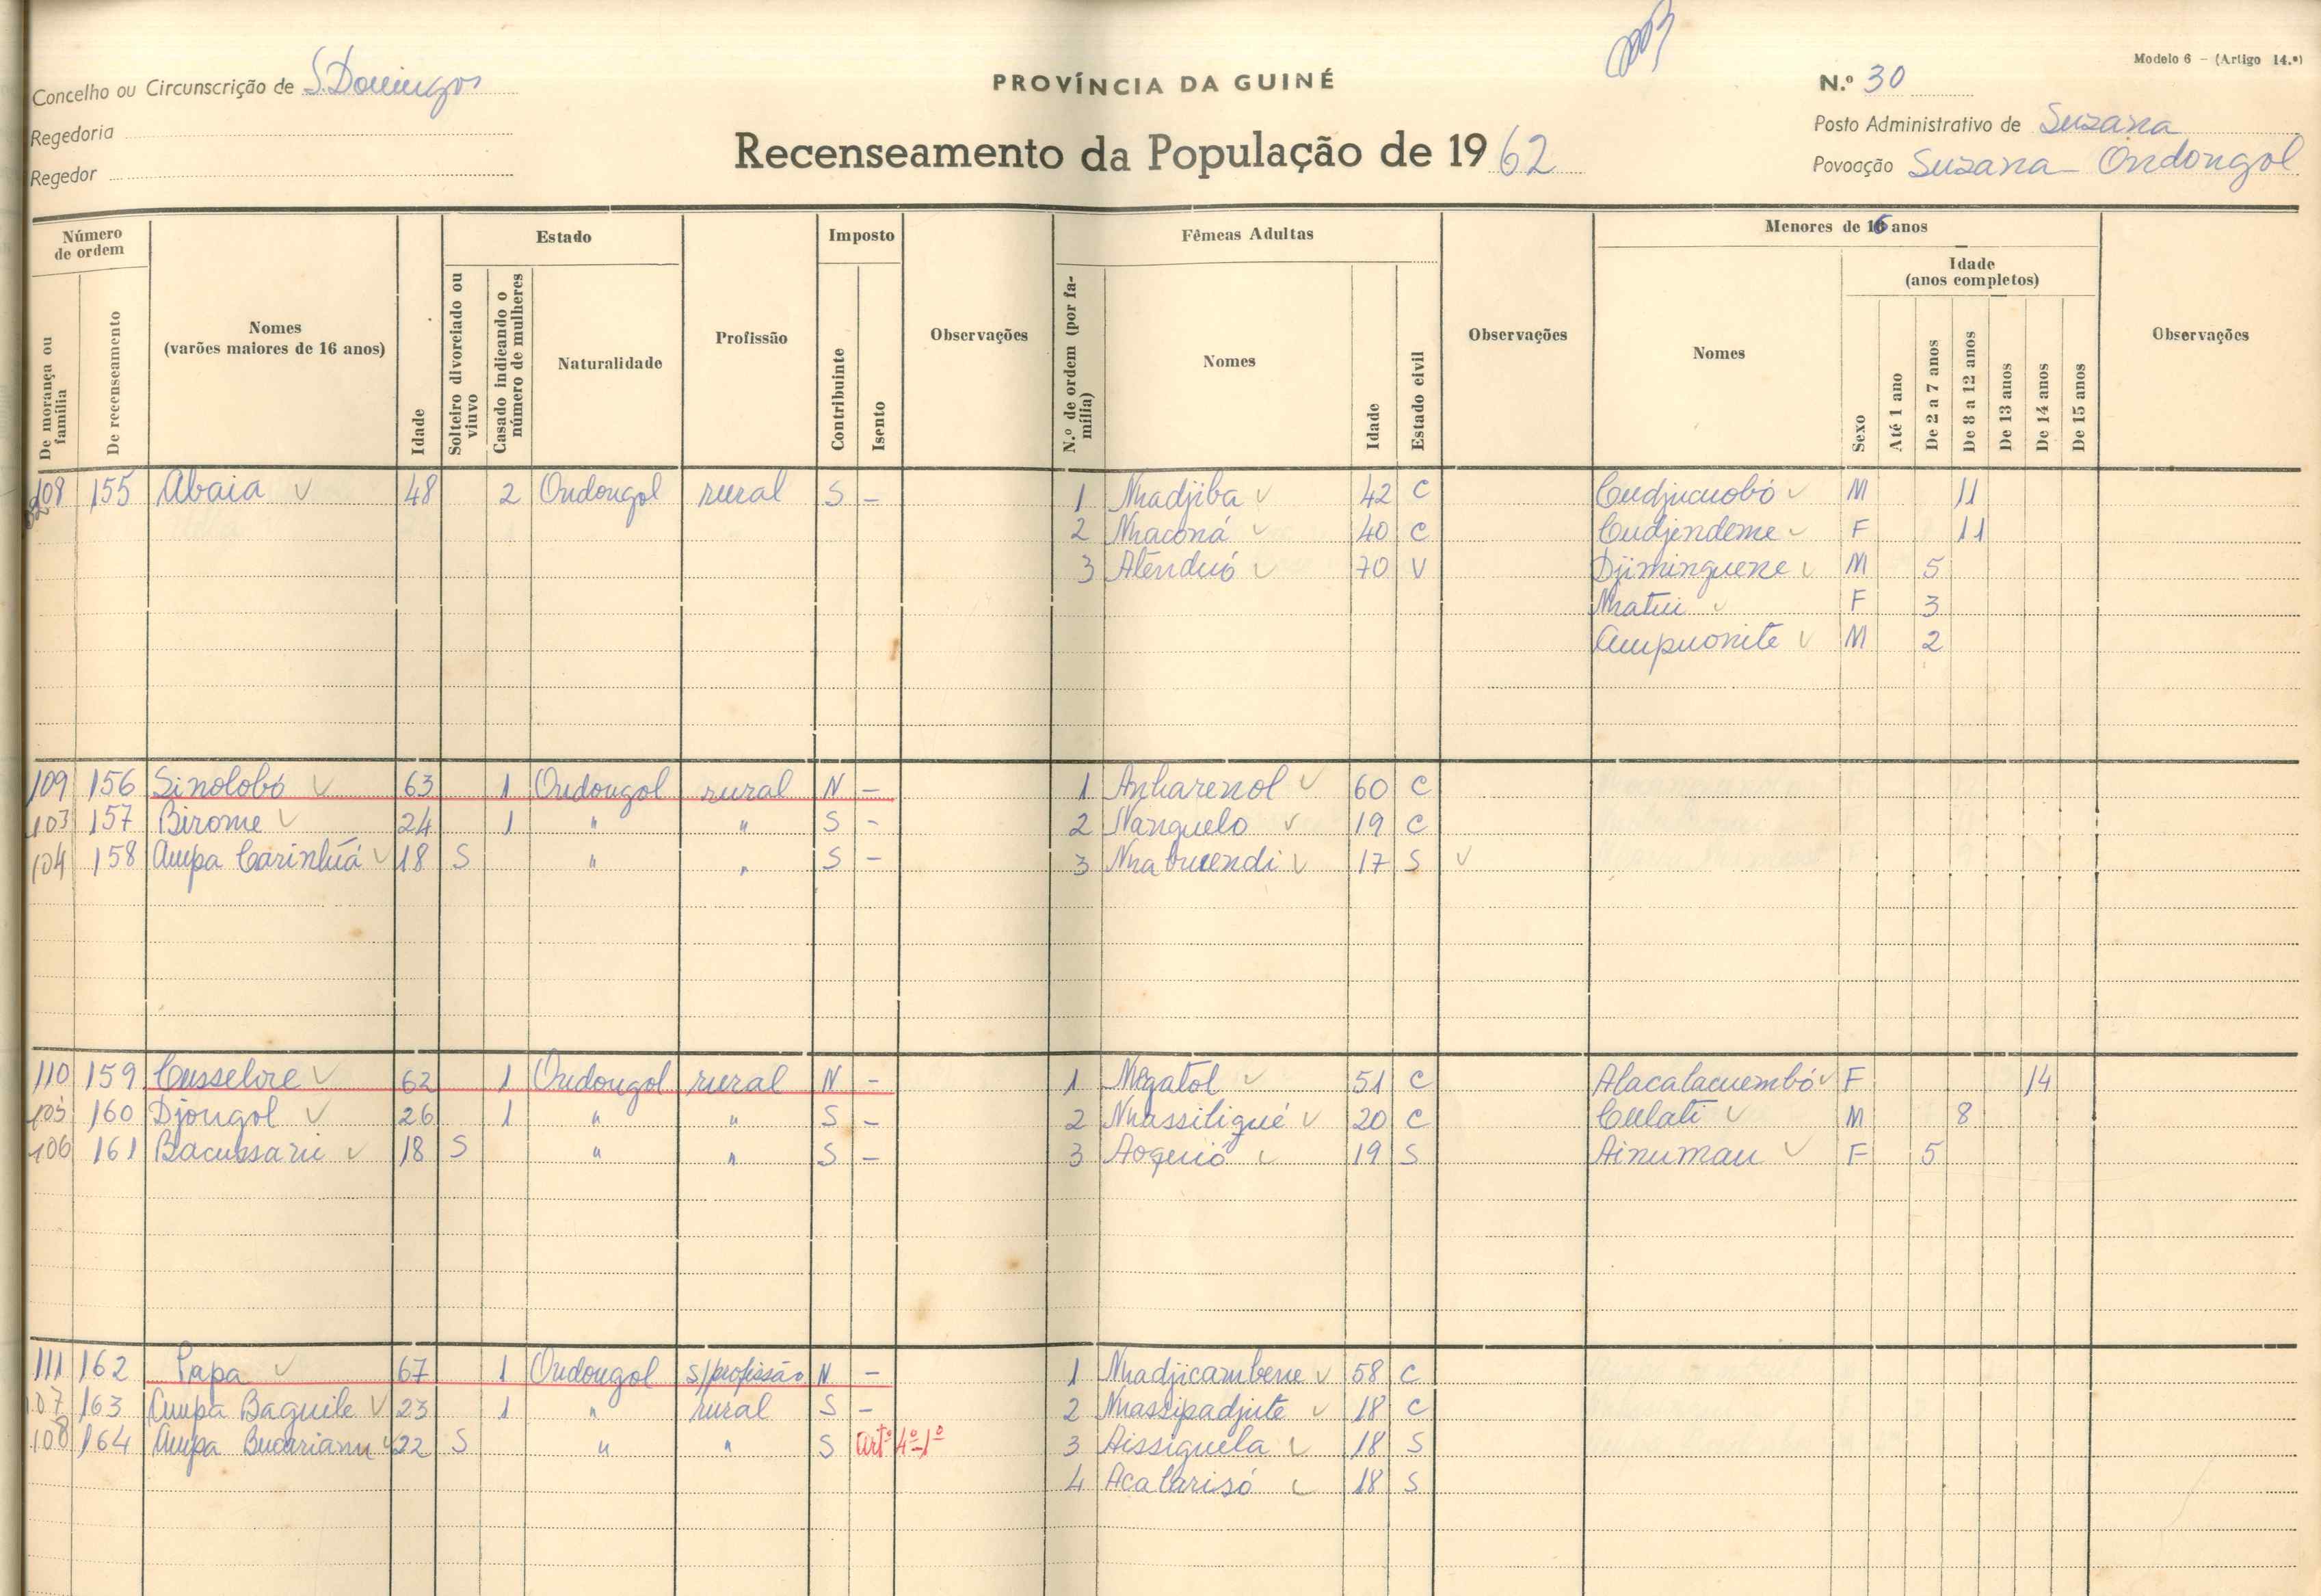 Modelo 6 - (Artigo 14.º)
Concelho ou Circunscrição de S. Domingos
PROVÍNCIA DA GUINÉ
N.º 30
Regedoria
Recenseamento da População de 1962
Posto Administrativo de Suzana
Regedor
Povoação Suzana - Ondongol
Número de ordem
De morança ou família
De recenseamento
Nomes (varões maiores de 16 anos)
Idade
Estado
Solteiro divorciado ou viuvo
Casado indicando o número de mulheres
Naturalidade
Profissão
Imposto
Contribuinte
Isento
Observações
Fêmeas Adultas
N.º de ordem (por família)
Nomes
Idade
Estado civil
Observações
Menores de 16 anos
Nomes
Sexo
Idade (anos completos)
Até 1 ano
De 2 a 7 anos
De 8 a 12 anos
De 13 anos
De 14 anos
De 15 anos
Observações
108 155 Abaia 48 2 Ondongol rural S - 1 Nhadjiba 42 C Cudjucuobó M 11
2 Nhaconá 40 C Cudjendeme F 11
3 Atenduó 70 V Djiminguene M 5
Nhatui F 3
Ampuonite M 2
109 156 Sinolobó 63 1 Ondongol rural N - 1 Anharenol 60 C
103 157 Birome 24 1 " " S - 2 Nanguelo 19 C
104 158 Ampa Carinhuá 18 S " " S - 3 17 S
110 159 62 1 Ondongol rural N - 1 Megatol 51 C Alacalacuembó F 14
105 160 Djongol 26 1 " " S - 2 Nhassiligué 20 C Culati M 8
106 161 Bacussari 18 S " " S - 3 19 S Ainumau F 5
111 162 Papa 67 1 Ondongol s/profissão N - 1 Nhadjicambene 58 C
107 163 Ampa Baguile 23 1 " rural S - 2 Nhassipadjute 18 C
108 164 Ampa 22 S " " S artº 4º-1º 3 Aissiguela 18 S
4 Acalarisó 18 S